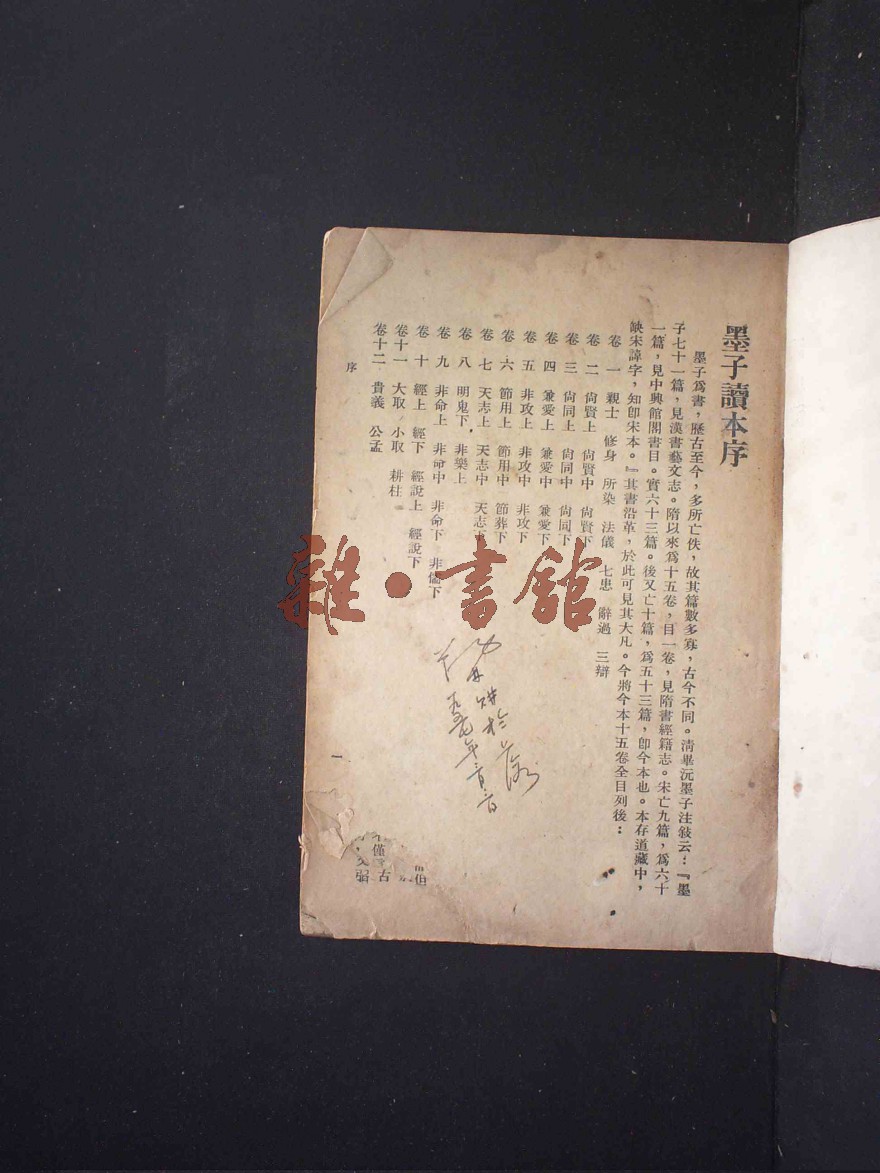 墨子讀本序
墨子爲書，歷古至今，多所亡佚，故其篇數多寡，古今不同。清畢沅墨子注敍云：『墨
子七十一篇，見漢書藝文志。隋以來爲十五卷，目一卷，見隋書經籍志。宋亡九篇，爲六十
一篇，見中興館閣書目。實六十三篇。後又亡十篇，爲五十三篇，卽今本也。本存道藏中，
缺宋諱字，知卽宋本。』其書沿革，於此可見其大凡。今將今本十五卷全目列後：
卷一 親士 修身 所染 法儀 七患 辭過 三辯
卷二 尙賢上 尙賢中 尙賢下
卷三 尙同上 尙同中 尙同下
卷四 兼愛上 兼愛中 兼愛下
卷五 非攻上 非攻中 非攻下
卷六 節用上 節用中 節葬下
卷七 天志上 天志中 天志下
卷八 明鬼下 非樂上
卷九 非命上 非命中 非命下 非儒下
卷十 經上 經下 經說上 經說下
卷十一 大取 小取 耕柱
卷十二 貴義 公孟
序
一
雜·書館
僅
古